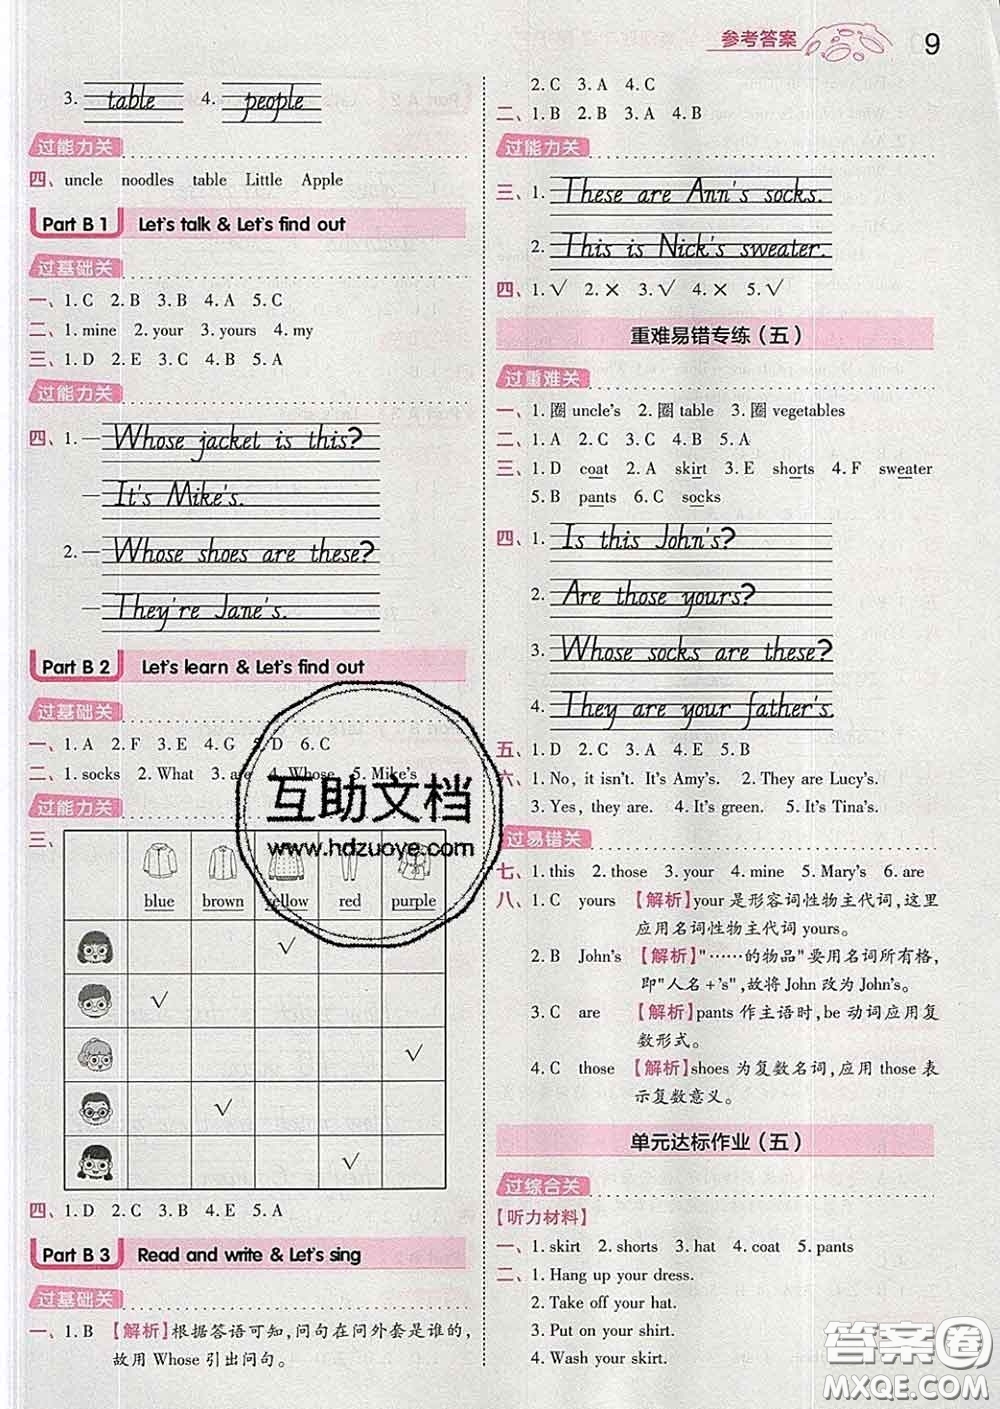 参考答案 9
3. table 4. people
过能力关
四、uncle noodles table Little Apple
Part B 1 Let's talk & Let's find out
过基础关
一、1. C 2. B 3. B 4. A 5. C
二、1. mine 2. your 3. yours 4. my
三、1. D 2. E 3. C 4. B 5. A
过能力关
四、1. — Whose jacket is this?
— It's Mike's.
2. — Whose shoes are these?
— They're Jane's.
Part B 2 Let's learn & Let's find out
过基础关
一、1. A 2. F 3. E 4. G 5. D 6. C
二、1. socks 2. What 3. are 4. Whose 5. Mike's
过能力关
三、
blue brown yellow red purple
√
√
√
√
√
四、1. D 2. C 3. B 4. E 5. A
Part B 3 Read and write & Let's sing
过基础关
一、1. B 【解析】根据答语可知,问句在问外套是谁的,
故用 Whose 引出问句。
2. C 3. A 4. C
二、1. B 2. B 3. A 4. B
过能力关
三、1. These are Ann's socks.
2. This is Nick's sweater.
四、1. √ 2. × 3. √ 4. × 5. √
重难易错专练(五)
过重难关
一、1. 圈 uncle's 2. 圈 table 3. 圈 vegetables
二、1. A 2. C 3. C 4. B 5. A
三、1. D coat 2. A skirt 3. E shorts 4. F sweater
5. B pants 6. C socks
四、1. Is this John's?
2. Are those yours?
3. Whose socks are these?
4. They are your father's.
五、1. D 2. C 3. A 4. E 5. B
六、1. No, it isn't. It's Amy's. 2. They are Lucy's.
3. Yes, they are. 4. It's green. 5. It's Tina's.
过易错关
七、1. this 2. those 3. your 4. mine 5. Mary's 6. are
八、1. C yours 【解析】your 是形容词性物主代词,这里
应用名词性物主代词 yours。
2. B John's 【解析】"……的物品"要用名词所有格,
即"人名+'s",故将 John 改为 John's。
3. C are 【解析】pants 作主语时,be 动词应用复
数形式。
4. C those 【解析】shoes 为复数名词,应用 those 表
示复数意义。
单元达标作业(五)
过综合关
【听力材料】
一、1. skirt 2. shorts 3. hat 4. coat 5. pants
二、1. Hang up your dress.
2. Take off your hat.
3. Put on your shirt.
4. Wash your skirt.
互助文档
www.hdzuoye.com
答案圈
MXQE.COM